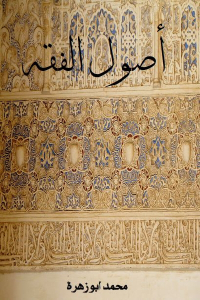 أصول الفقه
محمد أبوزهرة